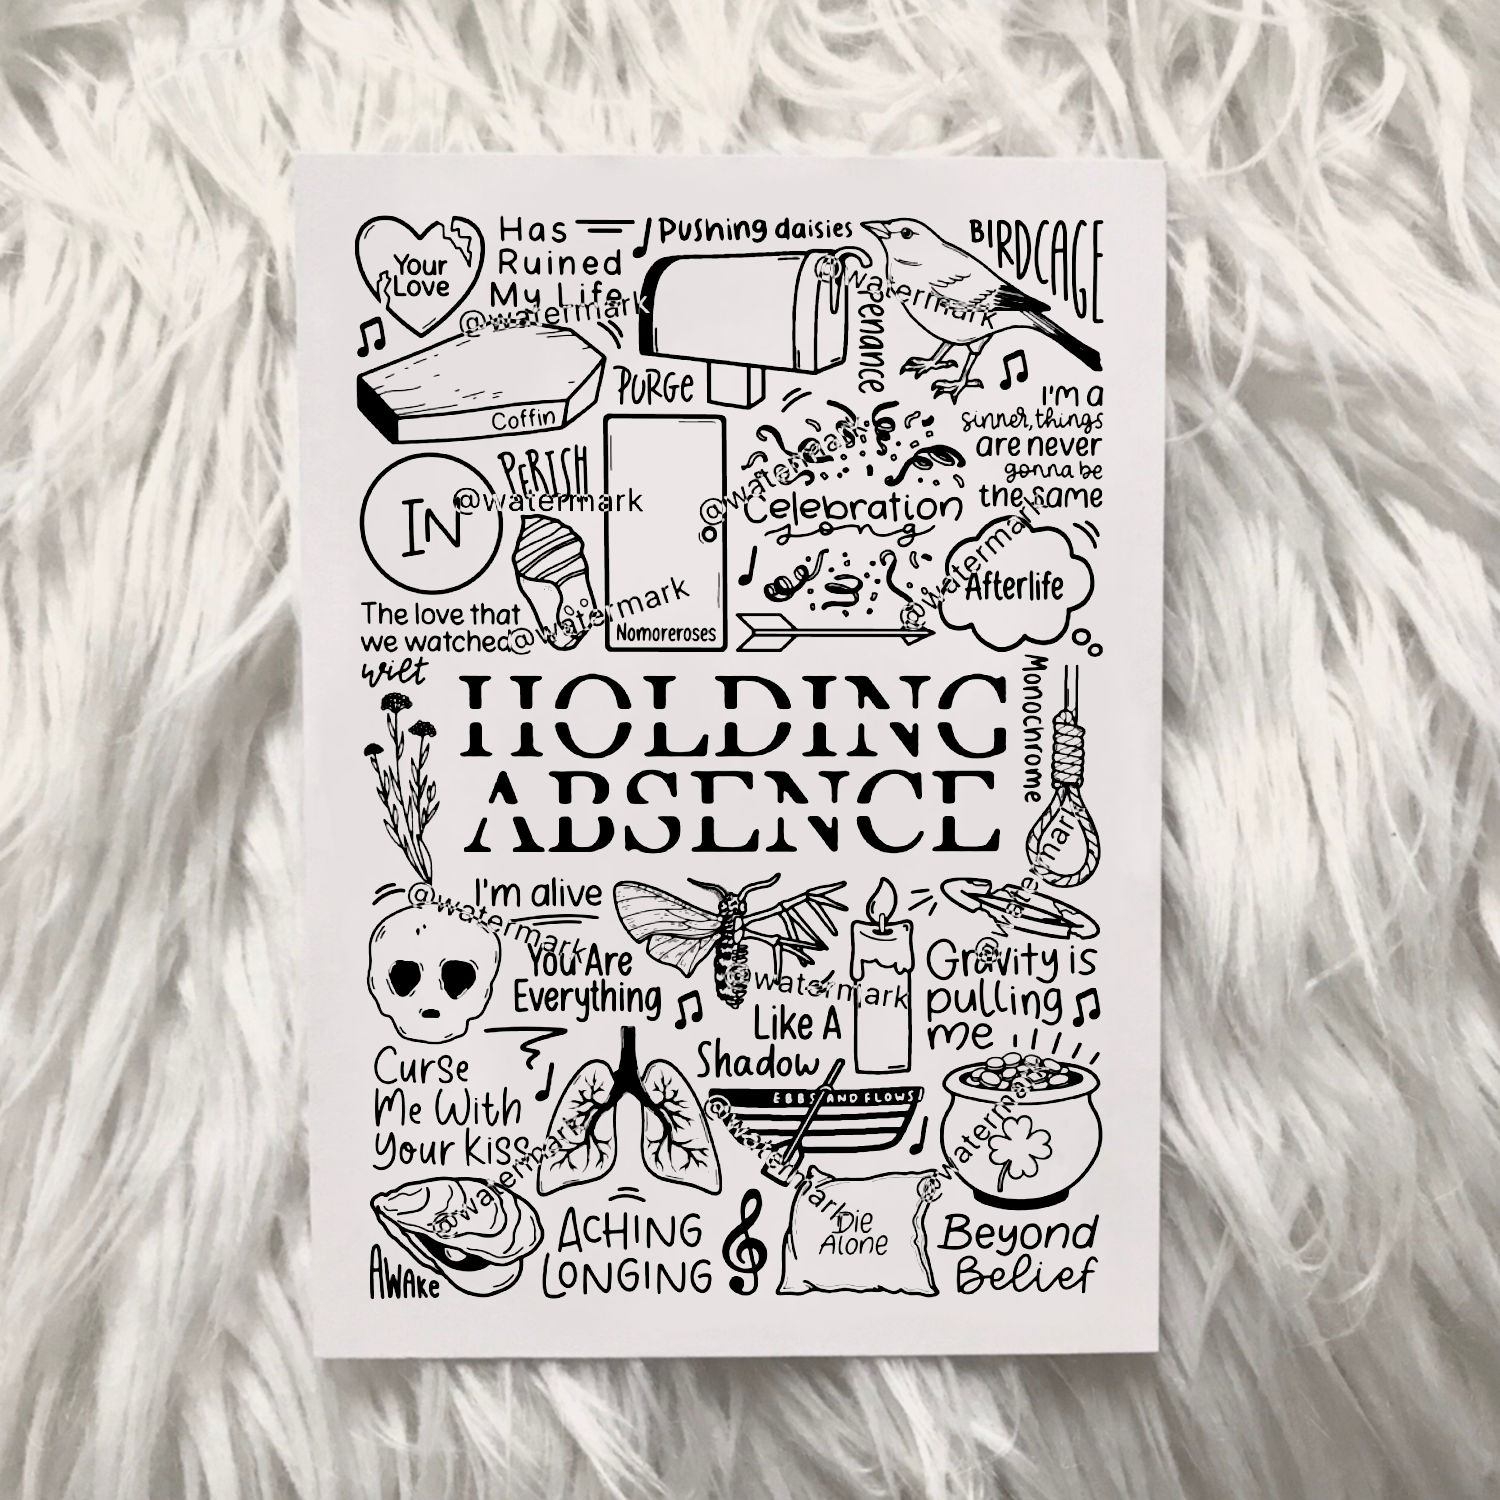 Your
Love
Has
Ruined
My Life
Pushing daisies
BIRDCAGE
@watermark
@watermark
penance
Coffin
PURGE
I'm a
sinner, things
are never
gonna be
the same
PERISH
IN
@watermark
@watermark
Celebration
song
@watermark
Afterlife
The love that
we watched
wilt
@watermark
Nomoreroses
HOLDING
ABSENCE
Monochrome
@watermark
I'm alive
@watermark
You Are
Everything
@watermark
Like A
Shadow
Gravity is
pulling
me
Curse
Me With
Your Kiss
EBBS AND FLOWS
@watermark
@watermark
@watermark
Awake
ACHING
LONGING
Die
Alone
Beyond
Belief